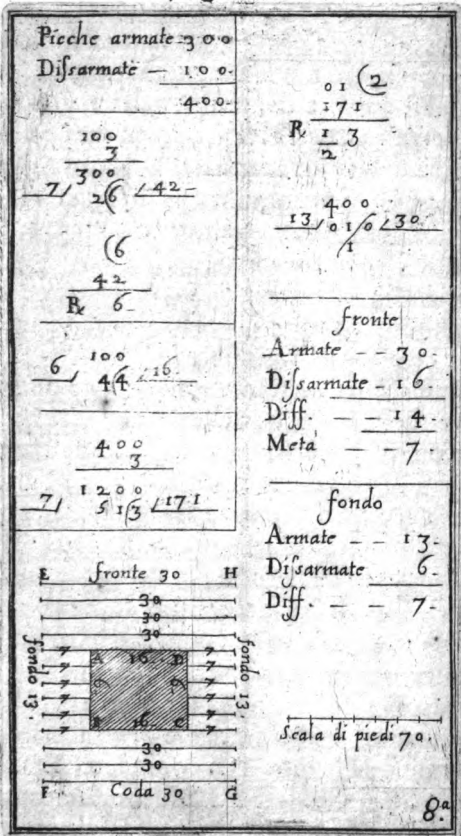 Picche armate - 300
Disarmate - 100-
400-
100
3
300
7/ 26 /42
(6
42
℞ 6-
100
6/ 4(4 /16
400
3
1200
7/ 51(3 /171
01 (2
171
℞ 1 3
2
400
13/ 010 /30
1
fronte
Armate - - 30-
Dissarmate - 16-
Diff. - - 14-
Metà - - 7-
fondo
Armate - - 13-
Dissarmate 6-
Diff. - - 7-
E fronte 30 H
30
30
30
fondo 13.
7
7
7
7
7
7
A 16 D
6
6
B 16 C
7
7
7
7
7
7
fondo 13.
30
30
F Coda 30 G
Scala di piedi 70.
8.ª